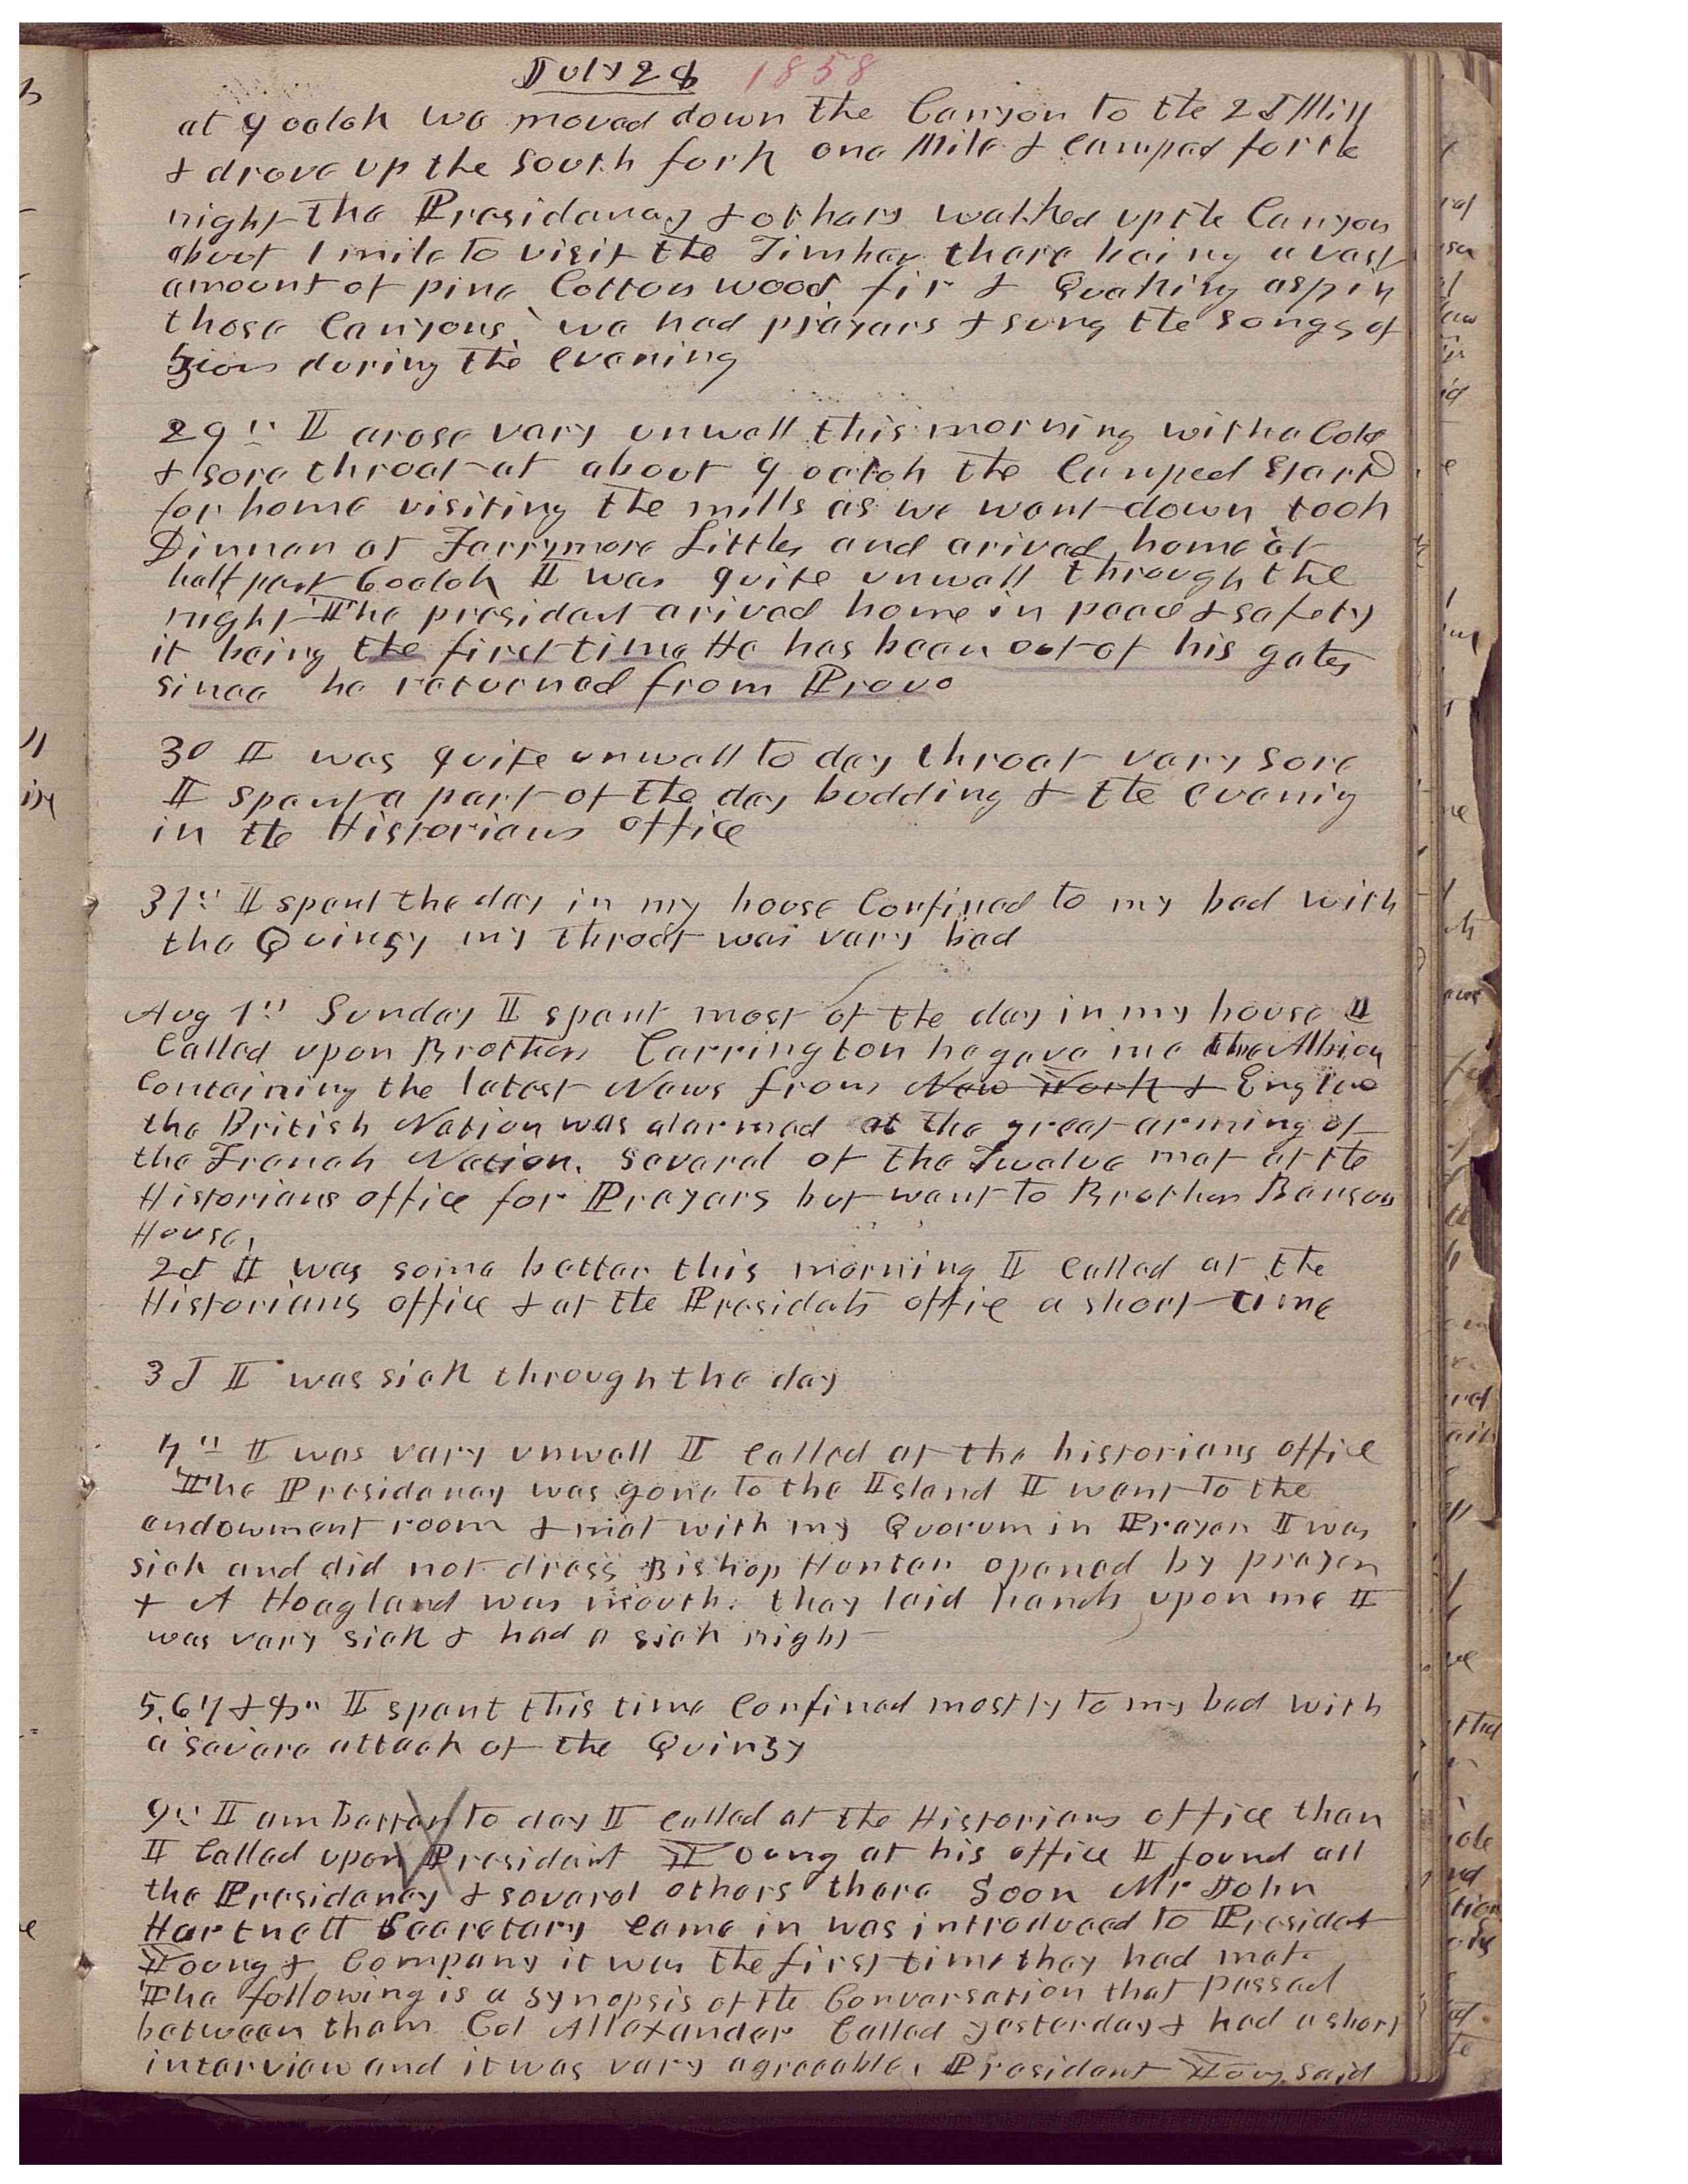 July 28 1858
at 9 oclok we moved down the Canyon to the 2d Mill
& drove up the South fork one Mile & camped for the
night The Presidency & others walked up the Canyon
about 1 mile to visit the Timber there being a vast
amount of pine Cotton wood fir & Quaking asp in
those Canyons we had prayers & sung the songs of
Zion during the evening
29th I arose very unwell this morning with a Cold
& sore throat at about 9 oclok the Camped start
for home visiting the mills as we went down took
Dinner at Farrymore Littles and arived home at
half past 6 oclok I was quite unwell through the
night The president arived home in peace & safety
it being the first time He has been out of his gates
since he returned from Provo
30 I was quite unwell to day throat very sore
I spent a part of the day budding & the evenig
in the Historians office
31st I spent the day in my house Confined to my bed with
the Quinsy my throat was very bad
Aug 1st Sunday I spent most of the day in my house I
Called upon Brother Carrington he gave me the Albion
Containing the latest News from New York & England
the British Nation was alarmed at the great arming of
the French Nation. Several of the Twelve met at the
Historians office for Prayers but went to Brother Bensons
House,
2d I was some better this morning I Called at the
Historians office & at the Presidets offie a short time
3d I was sick through the day
4th I was very unwell I called at the historians office
The Presidency was gone to the Island I went to the
endowment room & met with my Quorum in Prayer I was
sick and did not dress Bishop Hunter opened by prayer
& A Hoagland was mouth. they laid hands upon me I
was very sick & had a sick night
5, 6 7 & 8th I spent this time Confined mostly to my bed with
a severe attack of the Quinzy
9th I am better to day I called at the Historians office then
I Called upon President Young at his office I found all
the Presidency & several others there Soon Mr John
Hartnett Secretary came in was introduced to Presidet
Young & Company it was the first time they had met.
The following is a synopsis of the Conversation that passed
between them Col Allexander Called yesterday & had a short
interview and it was very agreeable, President Youg said